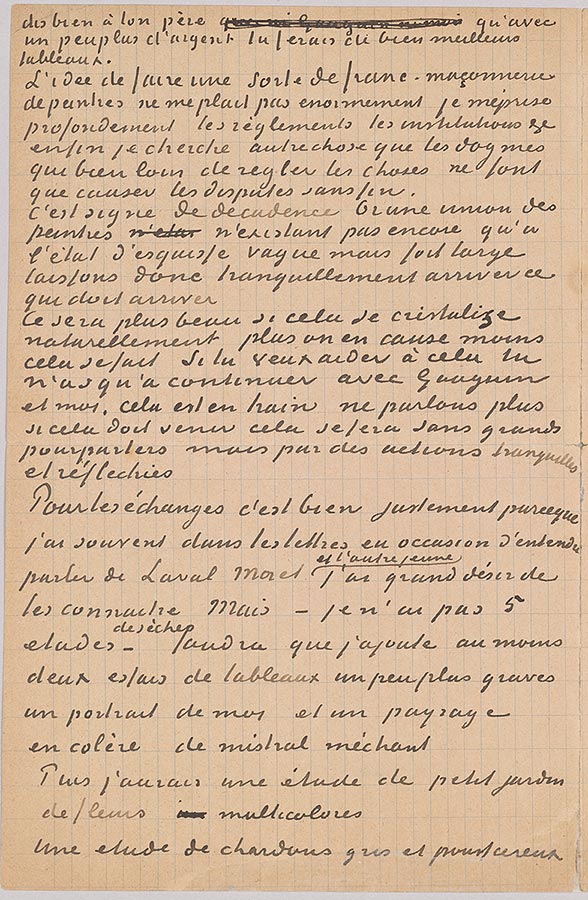 dis bien à ton père que ni Gauguin ni moi qu'avec
un peu plus d'argent tu ferais de bien meilleurs
tableaux.
L'idée de faire une sorte de franc-maçonnerie
de peintres ne me plait pas enormement je meprise
profondement les règlements les institutions &c
enfin je cherche autrechose que les dogmes
qui bien loin de regler les choses ne font
que causer les disputes sans fin.
C'est signe de decadence Or une union des
peintres n'etan n'existant pas encore qu'à
l'état d'esquisse vague mais fort large
laissons donc tranquillement arriver ce
qui doit arriver
Ce sera plus beau si cela se cristalize
naturellement plus on en cause moins
cela se fait Si tu veux aider à cela tu
n'as qu'à continuer avec Gauguin
et moi. cela est en train ne parlons plus
si cela doit venir cela se fera sans grands
pourparlers mais par des actions tranquilles
et réflechies
Pour les échanges c'est bien justement parceque
j'ai souvent dans les lettres eu occasion d'entendre
parler de Laval Moret et l'autre jeune J'ai grand désir de
les connaitre Mais – je n'ai pas 5
etudes de sèches – faudra que j'ajoute au moins
deux essais de tableaux un peu plus graves
un portrait de moi et un paysage
en colère de mistral méchant
Puis j'aurais une étude de petit jardin
de fleurs multicolores
une etude de chardons gris et poussiereux